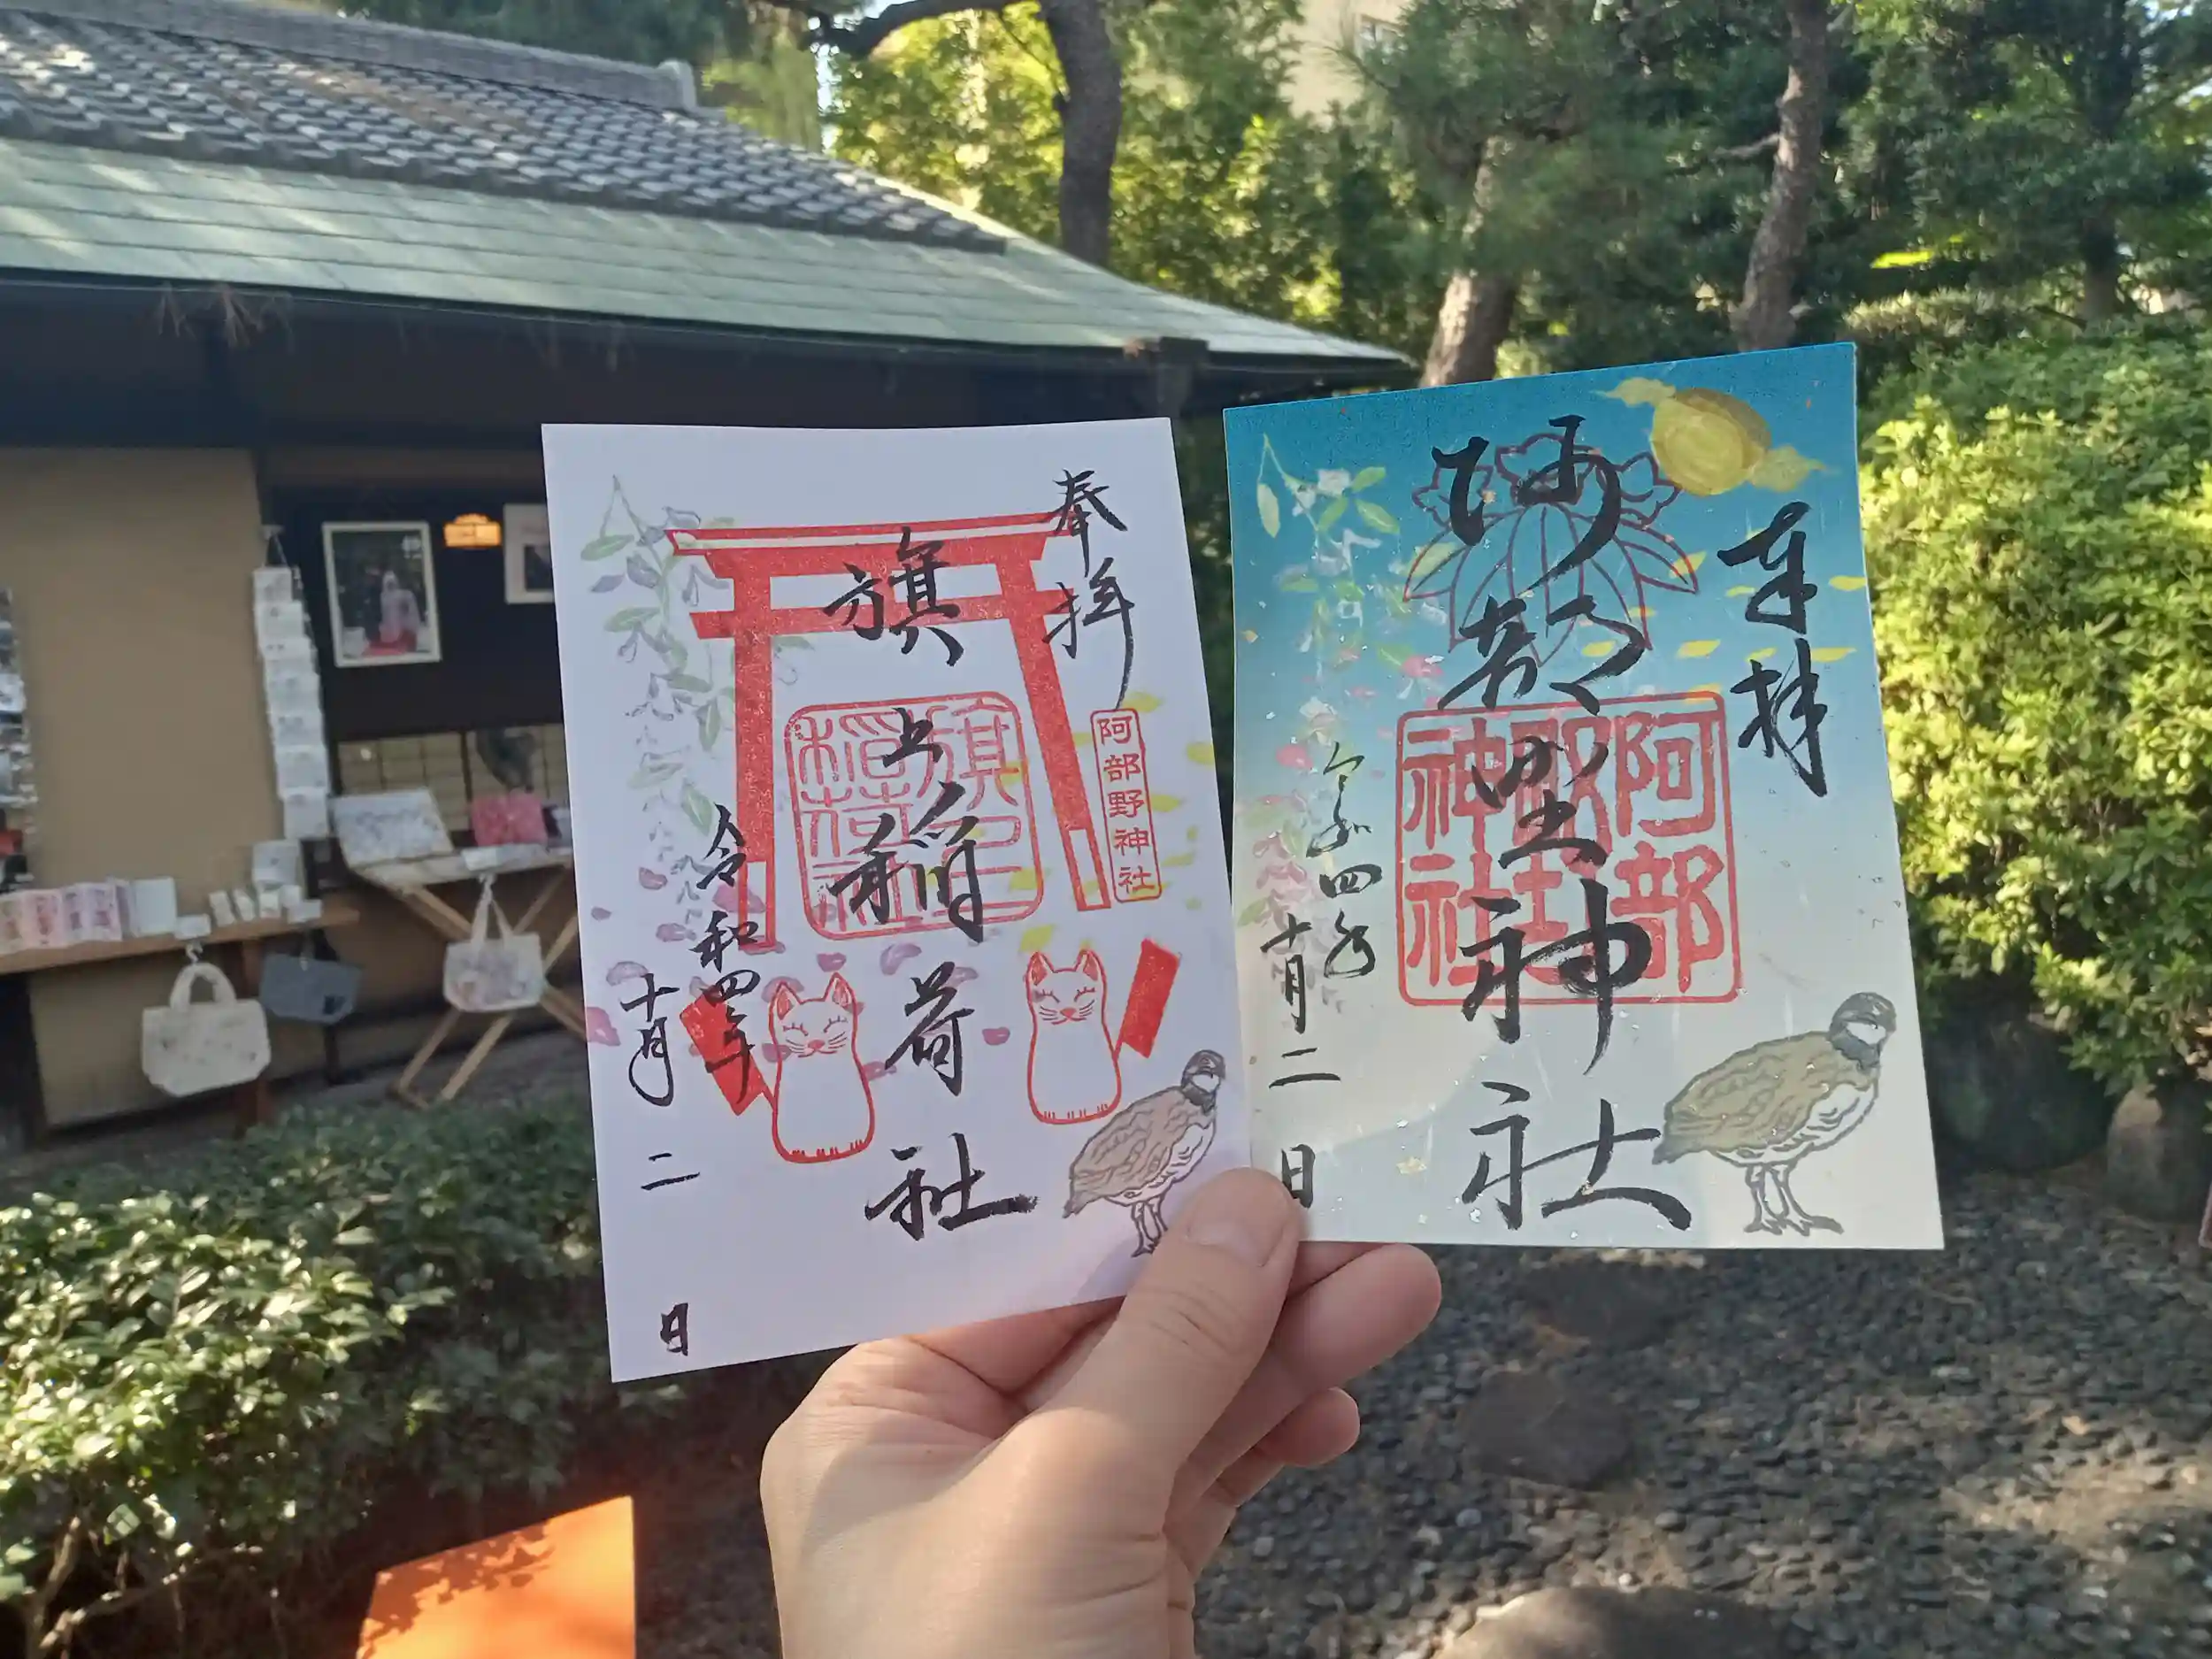 奉拝
旗上稲荷社
令和四年
十月二日
阿部野神社
旗上
稲荷社
奉拝
阿部野神社
令和四年
十月二日
阿部
野
神社